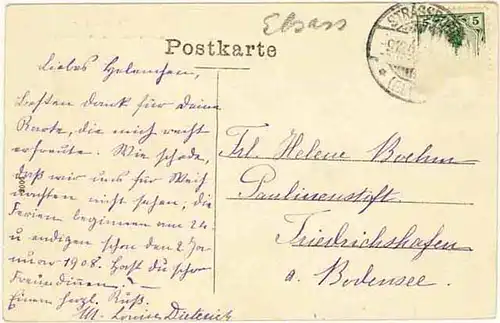 Elsass
Postkarte
STRASSB
5
Liebes Helenchen,
Besten Dank für Deine
Karte, die mich recht
erfreute. Wie schade,
daß wir uns für Weih
nachten nicht sehen; die
Ferien beginnen am 24.
u. endigen schon den 2. Ja
nuar 1908. Hast du schon
Freundinnen? -
Einen herzl. Kuß.
M. Louise Dieterich
Frl. Helene Boehm
Paulinenstift
Friedrichshafen
a. Bodensee.